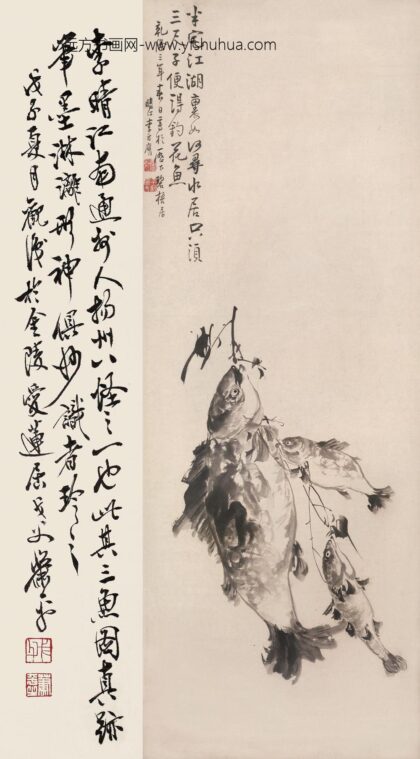 远方书画网-www.yfshuhua.com
江湖裏如何尋水居只須
三子便得釣花魚
乾隆三年春日寫於
晴江李方膺
李晴江南通州人揚州八怪之一也此其三魚圖真跡
筆墨淋漓形神俱妙識者珍之
戊子夏月觀後於金陵愛蓮居 蕭平